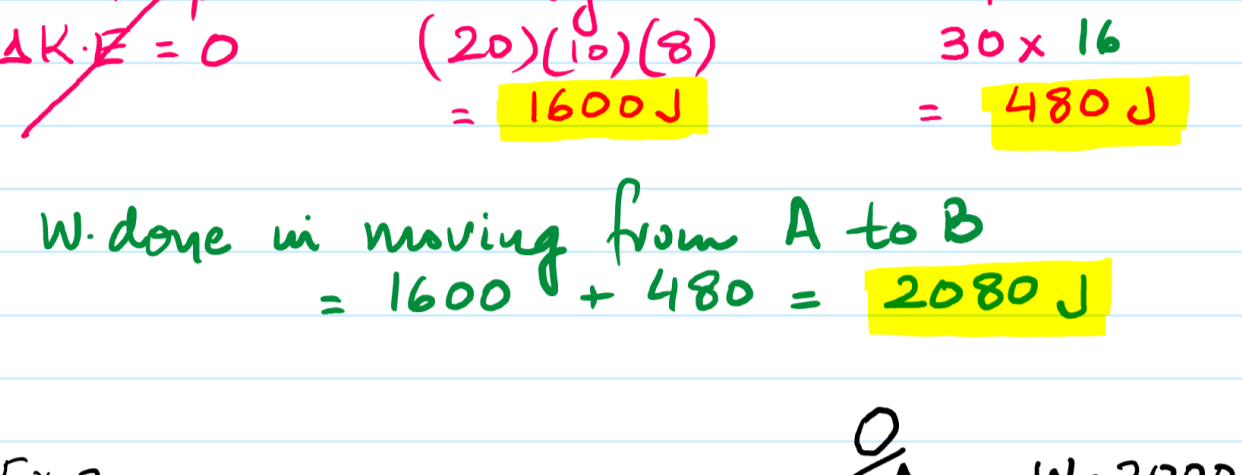 ΔK.E = 0
(20)(10)(8)
30 x 16
= 1600 J
= 480 J
W. done in moving from A to B
= 1600 + 480 = 2080 J